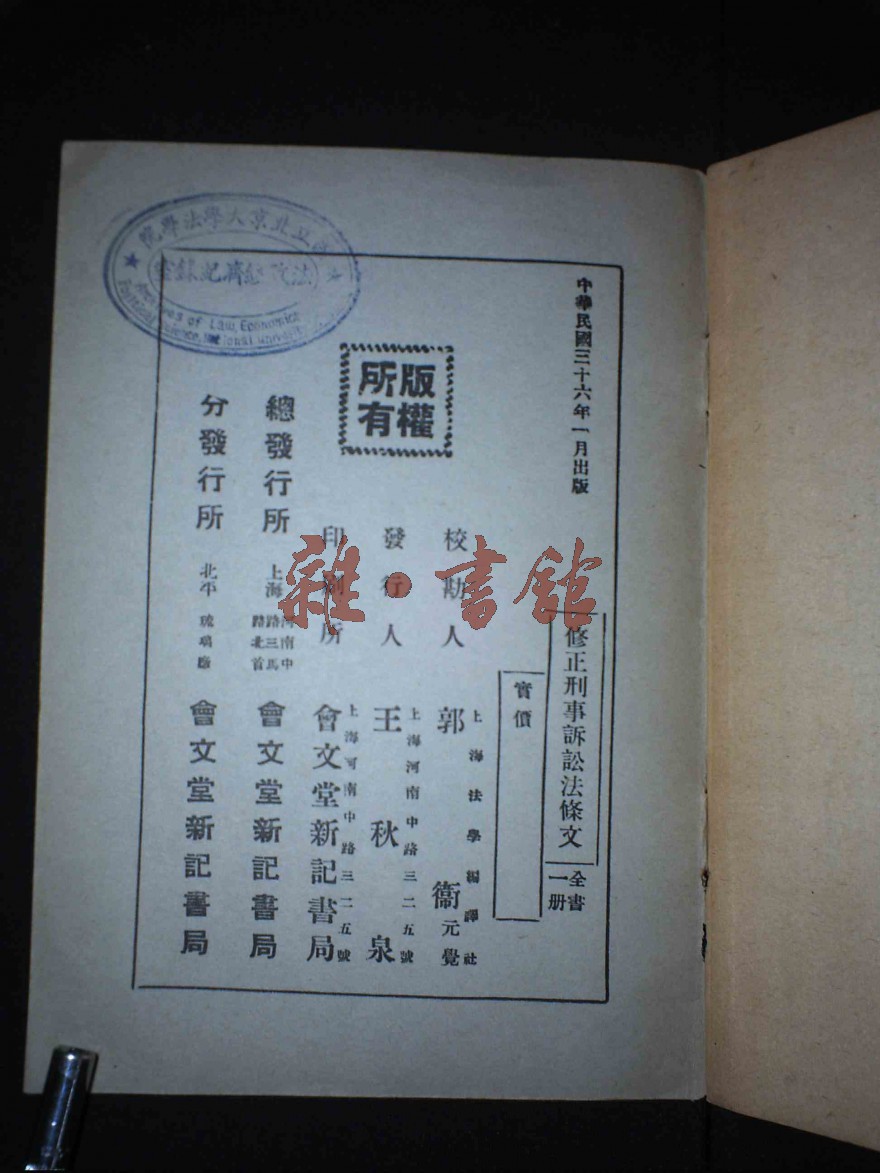 中華民國三十六年一月出版
修正刑事訴訟法條文
全書一册
實價
校勘人
上海法學編譯社
郭衞元覺
發行人
上海河南中路三二五號
王秋泉
印刷所
上海河南中路三二五號
會文堂新記書局
版權所有
總發行所
上海
河南中路三馬路北首
會文堂新記書局
分發行所
北平
琉璃廠
會文堂新記書局
立北京大學法學院
法政經濟記錄室
of Law, Economics
雜·書館